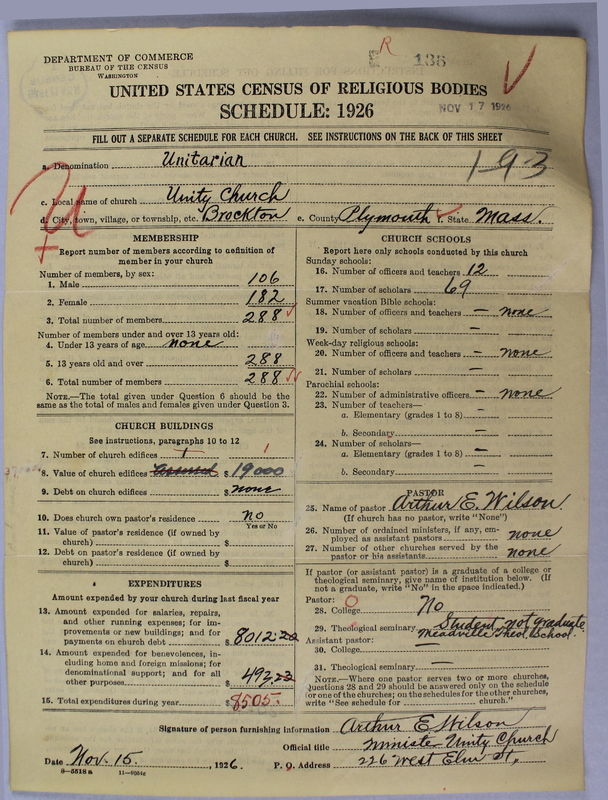 DEPARTMENT OF COMMERCE
BUREAU OF THE CENSUS
WASHINGTON
R 135
UNITED STATES CENSUS OF RELIGIOUS BODIES
SCHEDULE: 1926
NOV 17 1926
FILL OUT A SEPARATE SCHEDULE FOR EACH CHURCH. SEE INSTRUCTIONS ON THE BACK OF THIS SHEET
a. Denomination Unitarian
193
c. Local name of church Unity Church
d. City, town, village, or township, etc. Brockton e. County Plymouth f. State Mass.
MEMBERSHIP
Report number of members according to definition of
member in your church
Number of members, by sex:
1. Male 106
2. Female 182
3. Total number of members 288
Number of members under and over 13 years old:
4. Under 13 years of age none
5. 13 years old and over 288
6. Total number of members 288
NOTE.—The total given under Question 6 should be the
same as the total of males and females given under Question 3.
CHURCH BUILDINGS
See instructions, paragraphs 10 to 12
7. Number of church edifices 1 1
8. Value of church edifices Assessed $ 19000
9. Debt on church edifices $ none
10. Does church own pastor's residence no
Yes or No
11. Value of pastor's residence (if owned by
church) $
12. Debt on pastor's residence (if owned by
church) $
EXPENDITURES
Amount expended by your church during last fiscal year
13. Amount expended for salaries, repairs,
and other running expenses; for im-
provements or new buildings; and for
payments on church debt $ 8012.20
14. Amount expended for benevolences, in-
cluding home and foreign missions; for
denominational support; and for all
other purposes $ 493.23
15. Total expenditures during year $ 8505.
CHURCH SCHOOLS
Report here only schools conducted by this church
Sunday schools:
16. Number of officers and teachers 12
17. Number of scholars 69
Summer vacation Bible schools:
18. Number of officers and teachers – none
19. Number of scholars –
Week-day religious schools:
20. Number of officers and teachers – none
21. Number of scholars –
Parochial schools:
22. Number of administrative officers – none
23. Number of teachers—
a. Elementary (grades 1 to 8) –
b. Secondary –
24. Number of scholars—
a. Elementary (grades 1 to 8) –
b. Secondary –
PASTOR
25. Name of pastor Arthur E. Wilson
(If church has no pastor, write "None")
26. Number of ordained ministers, if any, em-
ployed as assistant pastors none
27. Number of other churches served by the
pastor or his assistants none
If pastor (or assistant pastor) is a graduate of a college or
theological seminary, give name of institution below. (If
not a graduate, write "No" in the space indicated.)
Pastor:
28. College No
29. Theological seminary Student not graduate
Meadville Theol. School.
Assistant pastor:
30. College —
31. Theological seminary —
NOTE.—Where one pastor serves two or more churches,
questions 28 and 29 should be answered only on the schedule
for one of the churches; on the schedules for the other churches,
write "See schedule for church."
Signature of person furnishing information Arthur E. Wilson
Official title Minister Unity Church
Date Nov. 15. , 1926. P. O. Address 226 West Elm St.
8—5518a 11—9004c